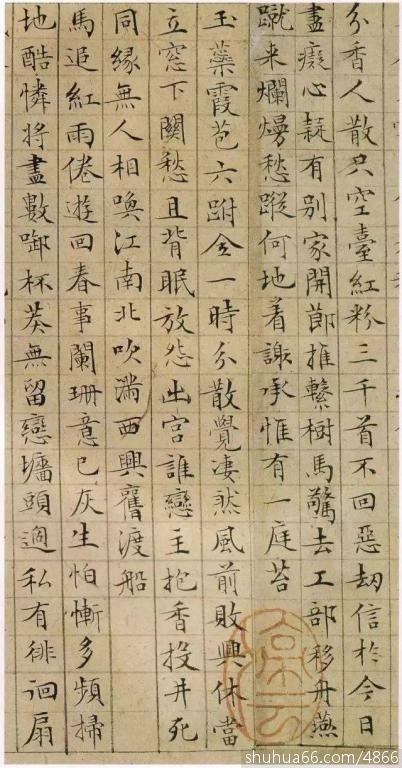 分香人散只空臺紅粉三千首不回惡劫信於今日
盡癡心疑有別家開節推繫樹馬驚去工部移舟燕
蹴来爛熳愁蹤何地着謝承惟有一庭苔
玉蘂霞苞六跗全一時分散覺凄然風前敗興休當
立窓下關愁且背眠放怨出宮誰戀主抱香投井死
同緣無人相喚江南北吹滿西興舊渡船
馬追紅雨倦遊回春事闌珊意已灰生怕漸多頻掃
地酷憐將盡數啣杯莫無留戀墻頭過私有徘徊扇
shuhua66.com/4866